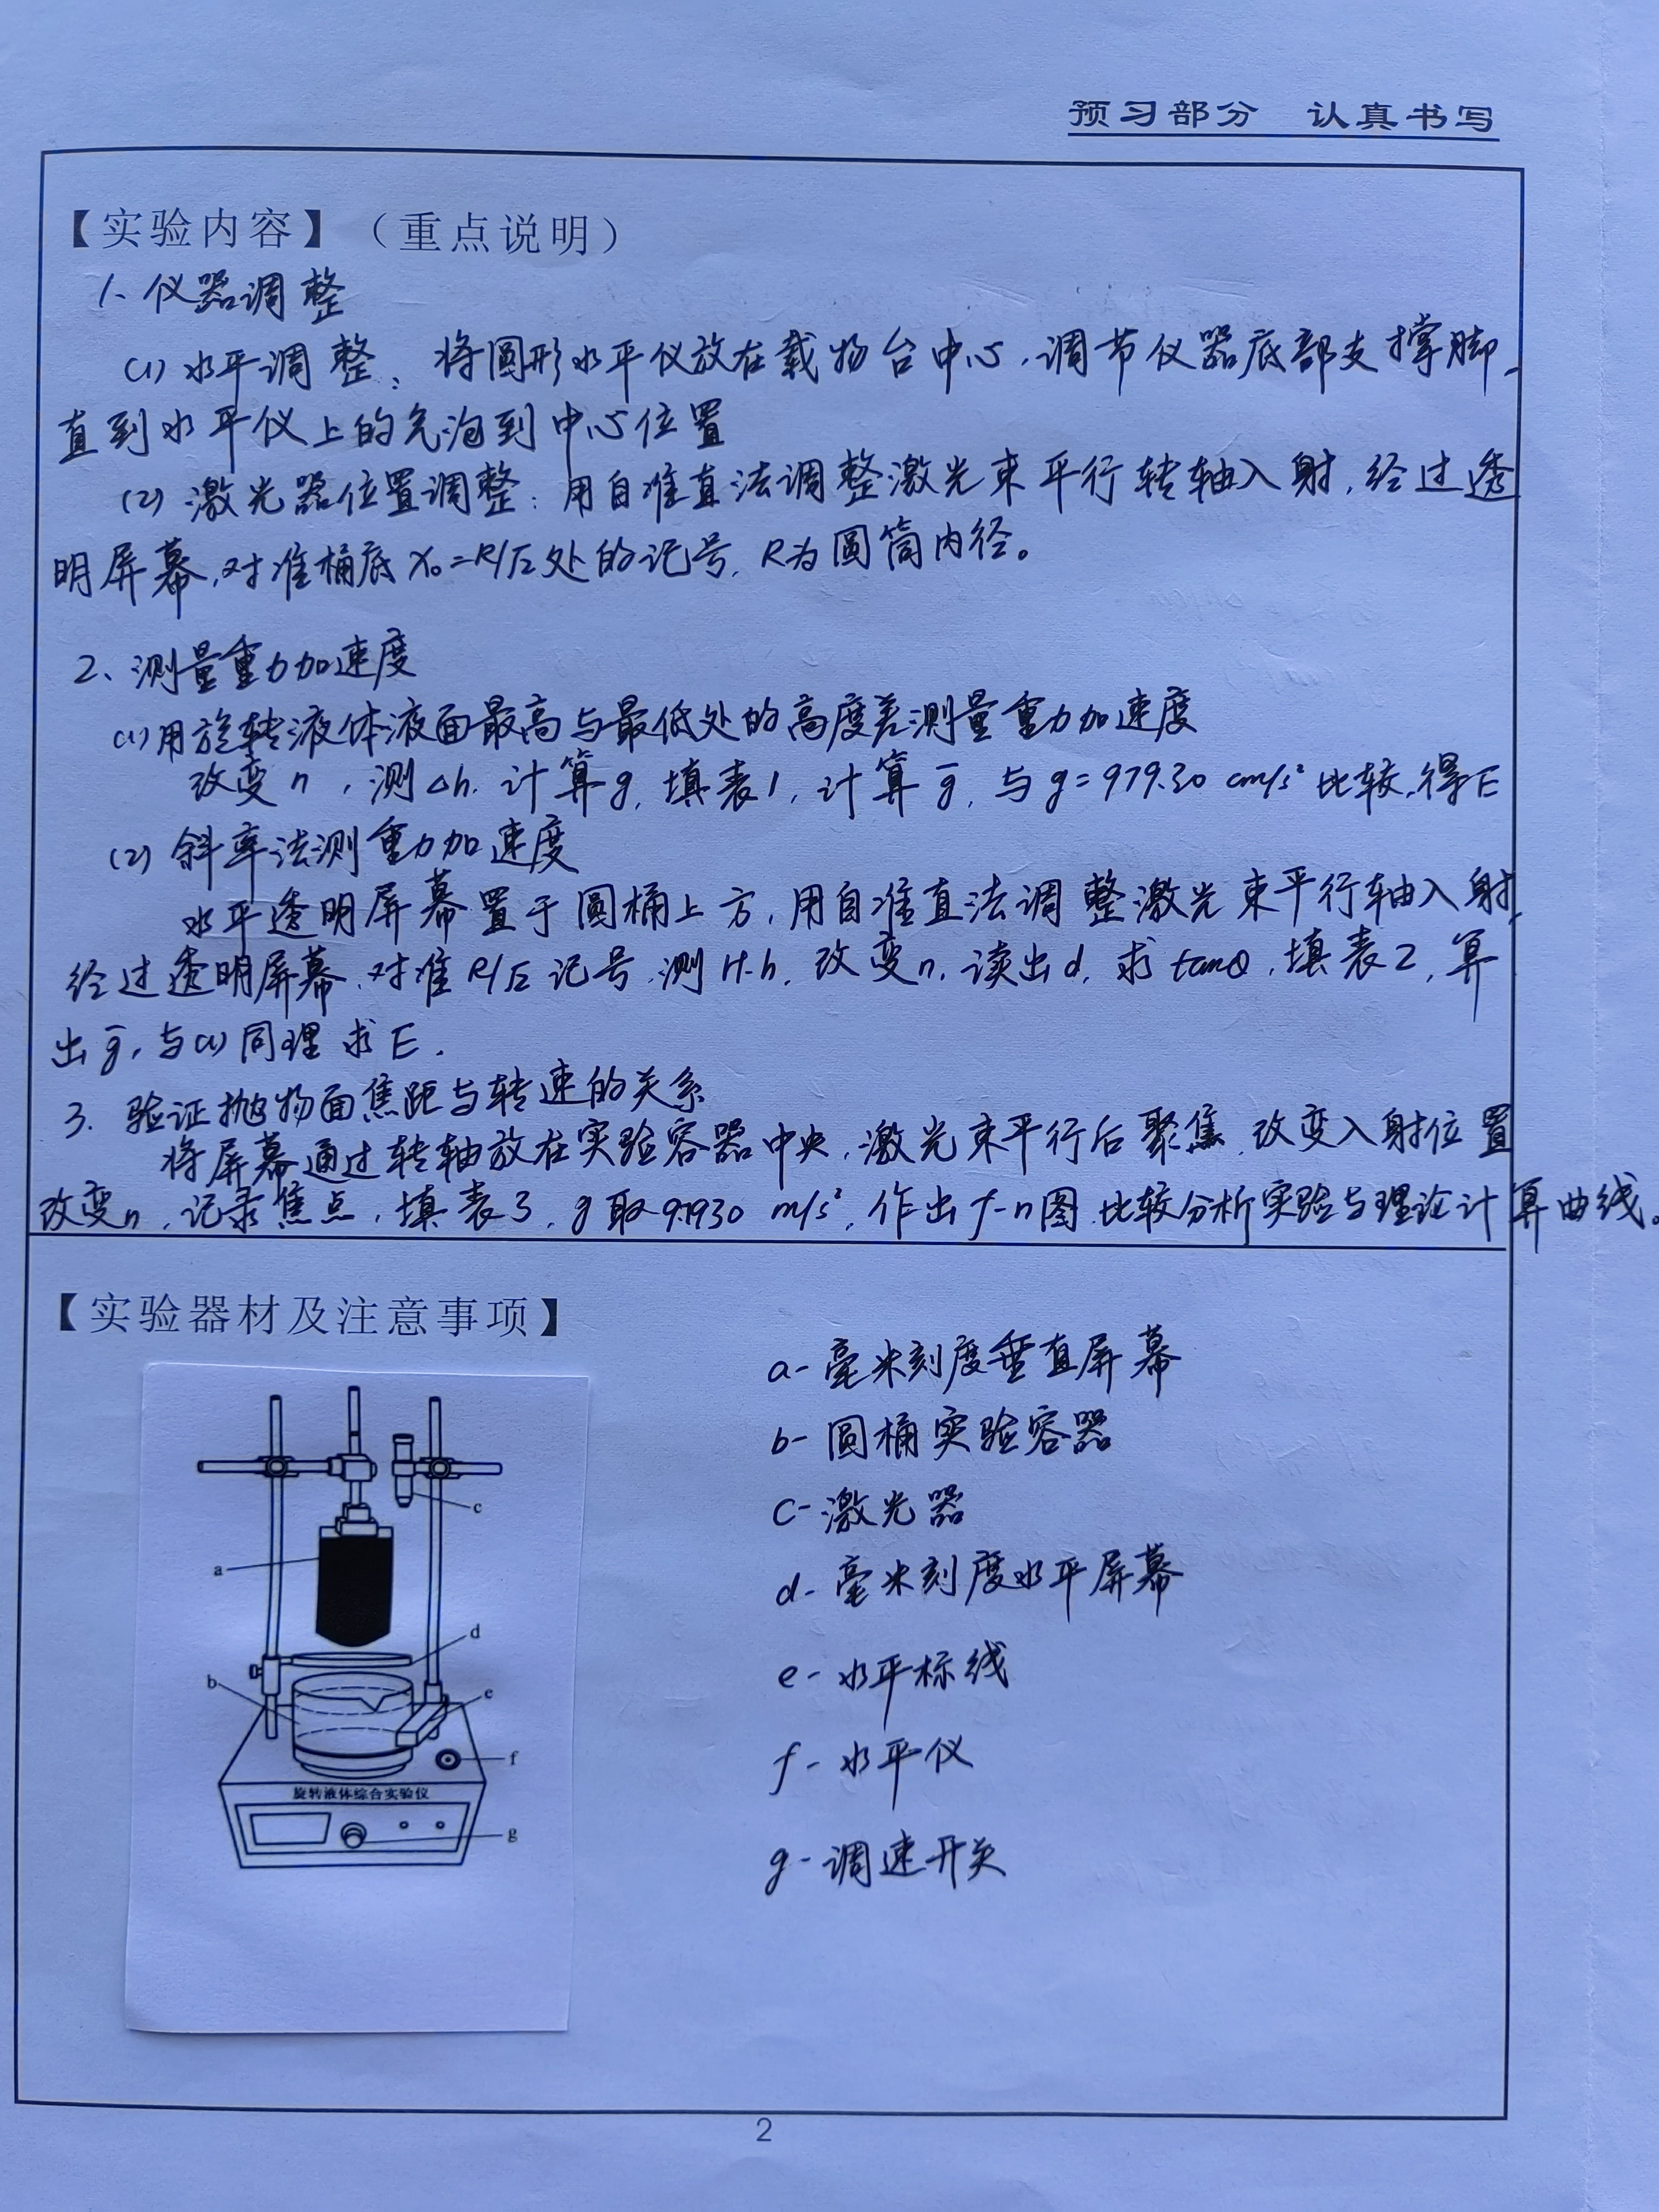 预习部分 认真书写
【实验内容】（重点说明）
1、仪器调整
(1) 水平调整：将圆形水平仪放在载物台中心，调节仪器底部支撑脚，
直到水平仪上的气泡到中心位置
(2) 激光器位置调整：用自准直法调整激光束平行转轴入射，经过透
明屏幕，对准桶底 X₀=R/√2处的记号，R为圆筒内径。
2、测量重力加速度
(1) 用旋转液体液面最高与最低处的高度差测量重力加速度
改变n，测Δh，计算g，填表1，计算g̅，与g=979.30 cm/s²比较，得E
(2) 斜率法测重力加速度
水平透明屏幕置于圆桶上方，用自准直法调整激光束平行轴入射，
经过透明屏幕，对准R/√2记号，测H、h，改变n，读出d，求tanθ，填表2，算
出g̅，与(1)同理求E.
3. 验证抛物面焦距与转速的关系
将屏幕通过转轴放在实验容器中央，激光束平行后聚焦，改变入射位置
改变n，记录焦点，填表3，g取9.7930 m/s²，作出f-n图，比较分析实验与理论计算曲线。
【实验器材及注意事项】
a
b
c
d
e
f
g
旋转液体综合实验仪
a- 毫米刻度垂直屏幕
b- 圆桶实验容器
c- 激光器
d- 毫米刻度水平屏幕
e- 水平标线
f- 水平仪
g- 调速开关
2